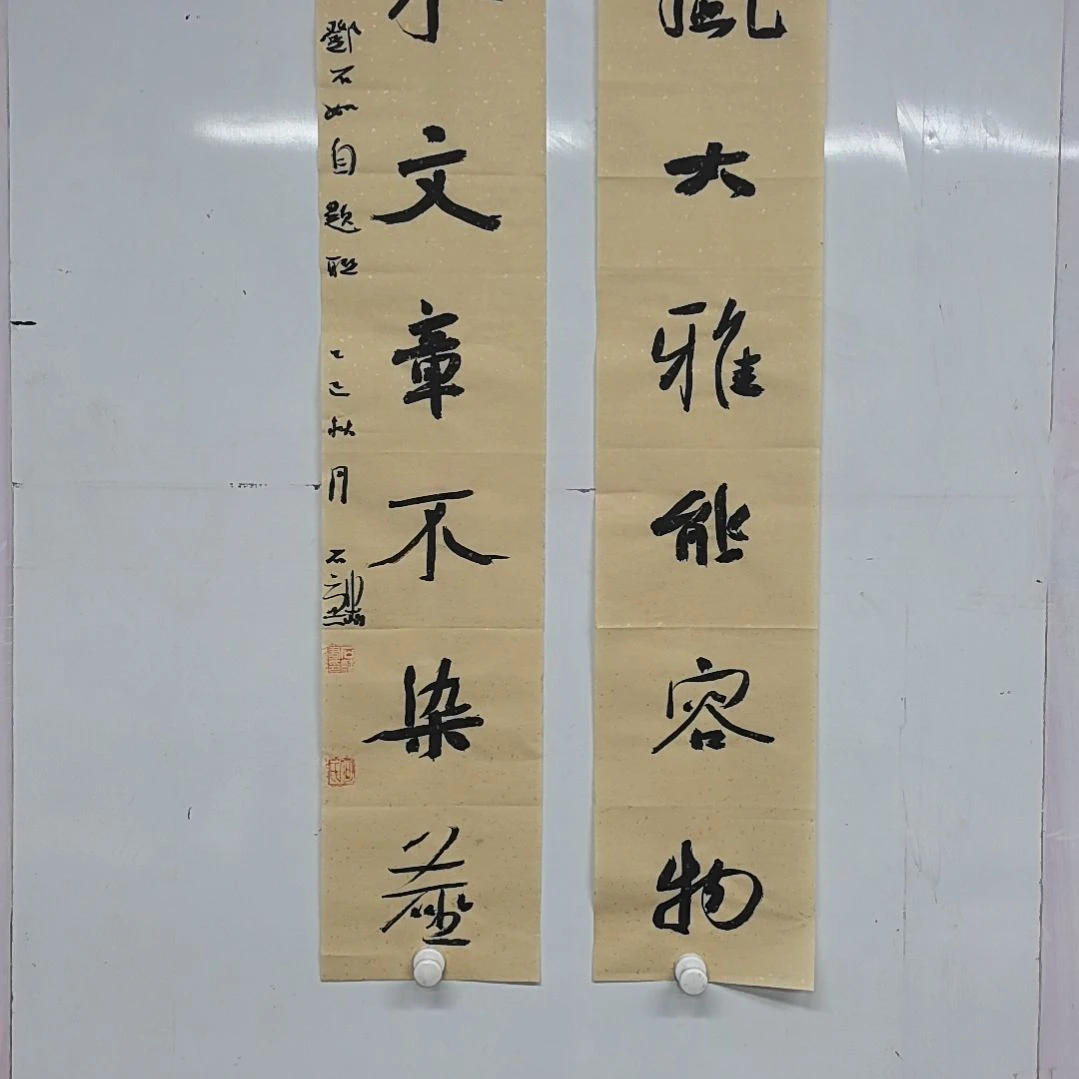 風大雅能容物
水文章不染塵
鄧石如自題聯
乙巳秋月 石